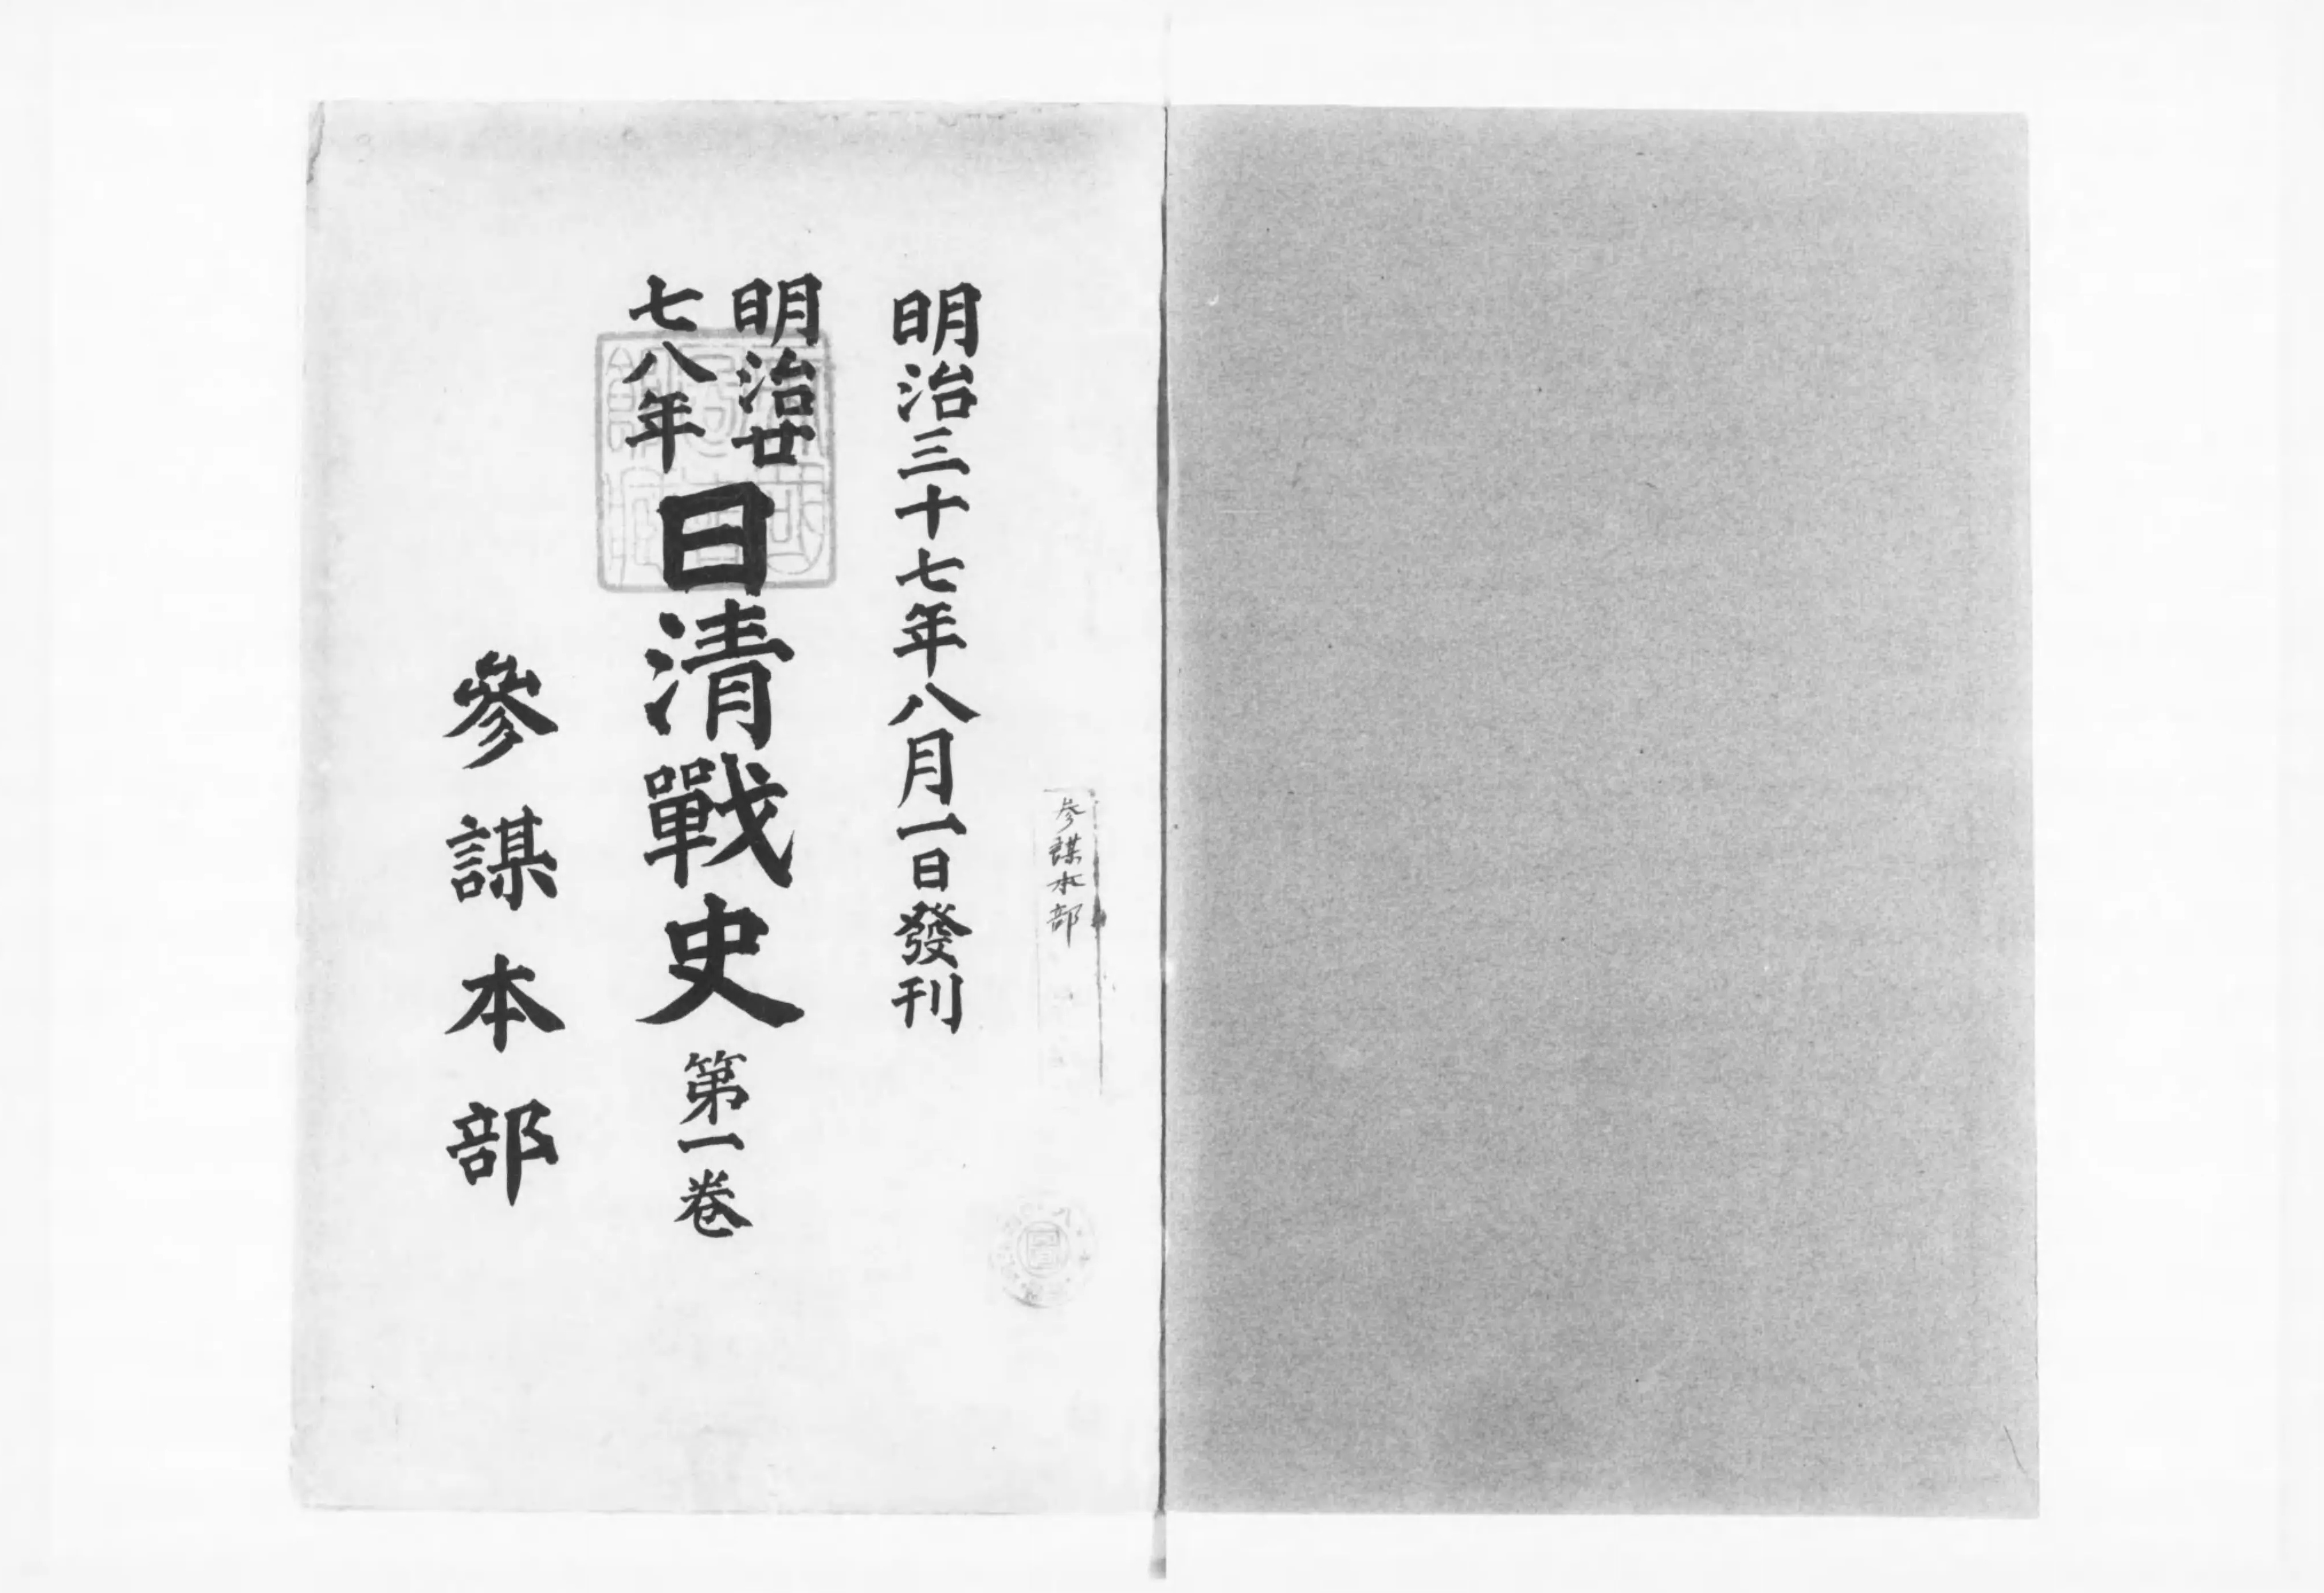 參謀本部
明治三十七年八月一日發刊
明治廿
七八年
日清戰史 第一卷
參謀本部